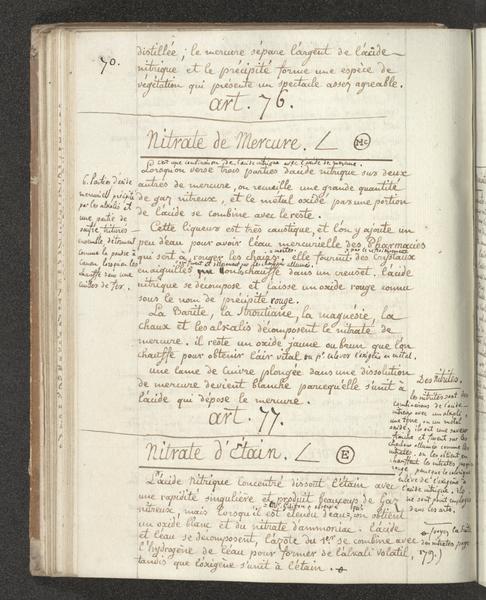 70.
distillée; le mercure sépare l'argent de l'acide
nitrique et le précipité forme une espèce de
végétation qui présente un spectacle assez agreable.
art. 76.
Nitrate de Mercure. Mc
C'est une combinaison de l'acide nitrique avec l'oxide de mercure.
Lorsqu'on verse trois parties d'acide nitrique sur deux
autres de mercure, on recueille une grande quantité
de gaz nitreux, et le métal oxidé par une portion
de l'acide se combine avec le reste.
6. Parties d'oxide
mercuriel précipité
par les alcalis et
une partie de
soufre triturés
ensemble détonnent
comme la poudre à
canon lorsqu'on les
chauffe dans une
cuiller de fer.
Cette liqueur est très caustique, et l'on y ajoute un
peu d'eau pour avoir l'eau mercurielle des Pharmacies
qui sert à ronger les chairs. elle fournit des Crystaux
en aiguilles que l'on chauffe dans un creuset. l'acide
nitrique se décompose et laisse un oxide rouge connu
sous le nom de précipité rouge.
La Barite, la Strontiane, la magnésie, la
chaux et les alkalis décomposent le nitrate de
mercure. il reste un oxide jaune ou brun que l'on
chauffe pour obtenir l'air vital ou pr. enlever l'oxigène au métal.
une lame de cuivre plongée dans une dissolution
de mercure devient blanche parcequ'elle s'unit à
l'acide qui dépose le mercure.
art. 77.
Nitrate d'Etain. E
L'acide nitrique concentré dissout l'étain avec
une rapidité singulière et produit beaucoup de Gaz
nitreux, mais lorsqu'il est étendu d'eau, on obtient
un oxide blanc et du nitrate d'ammoniac. l'acide
et l'eau se décomposent, l'azote du 1er se combine avec
l'hydrogène de l'eau pour former de l'alcali volatil,
tandis que l'oxigène s'unit à l'étain.
Des Nitrites.
les nitrites sont des
combinaisons de l'acide
nitreux avec un alcali,
une terre, ou un métal
oxidé; ils ont une saveur
fraiche et fusent sur les
charbons allumés comme les
nitrates. on les obtient en
chauffant les nitrates
rouge, parceque le calorique
enlève de l'oxigène à
l'acide nitrique. ils
ne sont point employés
dans les arts.
(voyez la suite
des nitrates page
179.)